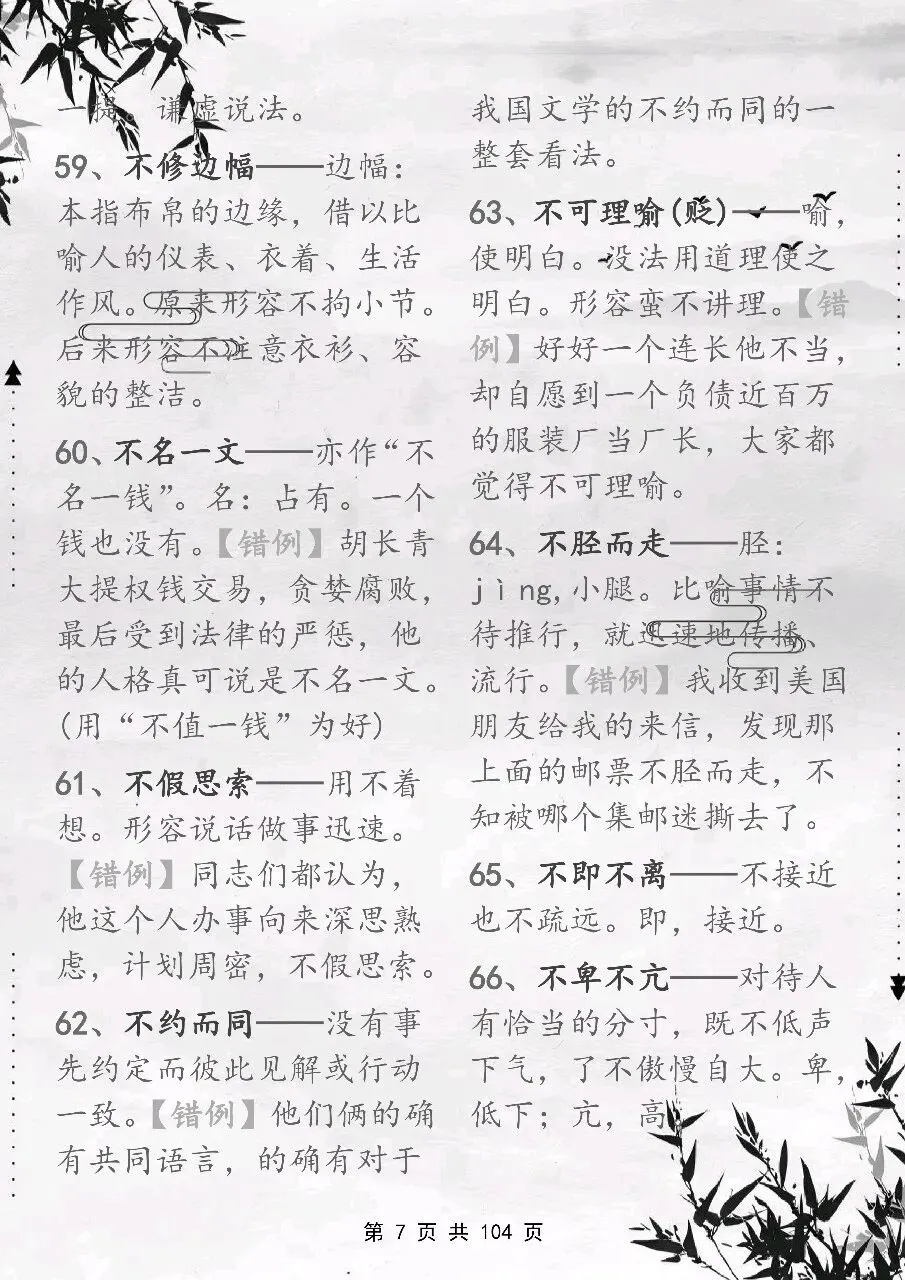 一提。谦虚说法。
59、不修边幅——边幅：
本指布帛的边缘，借以比
喻人的仪表、衣着、生活
作风。原来形容不拘小节。
后来形容不注意衣衫、容
貌的整洁。
60、不名一文——亦作“不
名一钱”。名：占有。一个
钱也没有。【错例】胡长青
大提权钱交易，贪婪腐败，
最后受到法律的严惩，他
的人格真可说是不名一文。
(用“不值一钱”为好)
61、不假思索——用不着
想。形容说话做事迅速。
【错例】同志们都认为，
他这个人办事向来深思熟
虑，计划周密，不假思索。
62、不约而同——没有事
先约定而彼此见解或行动
一致。【错例】他们俩的确
有共同语言，的确有对于
我国文学的不约而同的一
整套看法。
63、不可理喻(贬)——喻，
使明白。没法用道理使之
明白。形容蛮不讲理。【错
例】好好一个连长他不当，
却自愿到一个负债近百万
的服装厂当厂长，大家都
觉得不可理喻。
64、不胫而走——胫：
jìng,小腿。比喻事情不
待推行，就迅速地传播、
流行。【错例】我收到美国
朋友给我的来信，发现那
上面的邮票不胫而走，不
知被哪个集邮迷撕去了。
65、不即不离——不接近
也不疏远。即，接近。
66、不卑不亢——对待人
有恰当的分寸，既不低声
下气，了不傲慢自大。卑，
低下；亢，高
第 7 页 共 104 页